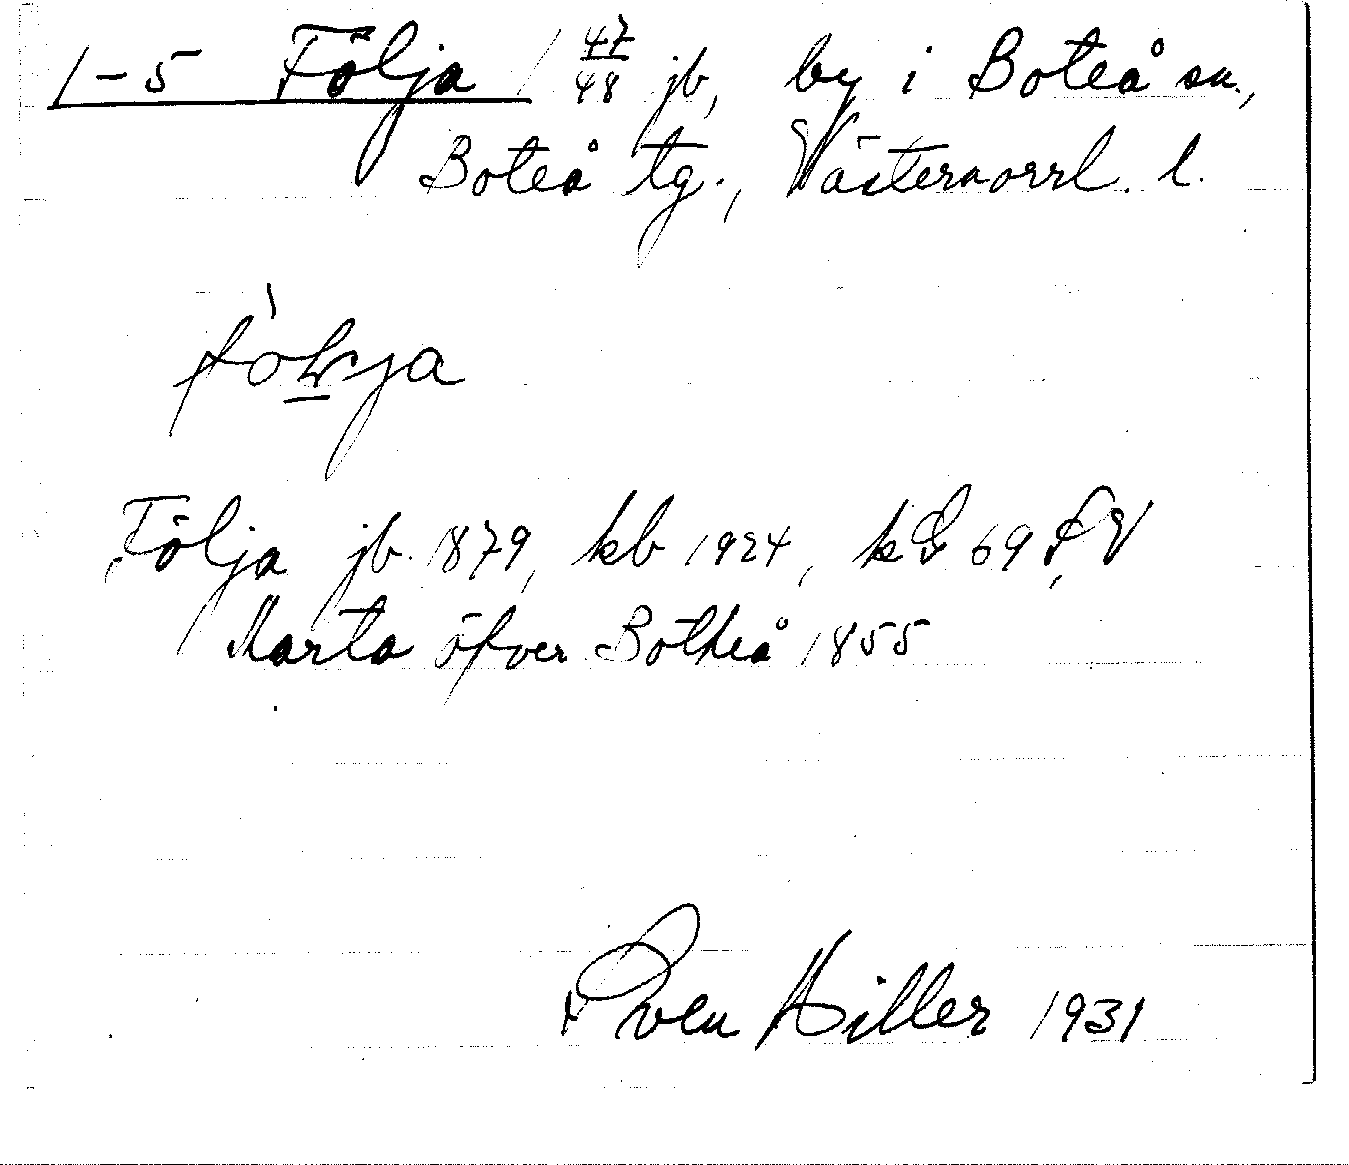 1-5 Följa 1 47/48 jb, by i Boteå sn.,
Boteå tg., Västernorrl. l.
Följa jb. 1879, kb 1924, kG 69 F,V
Marta öfver Botheå 1855
Sven Hiller 1931